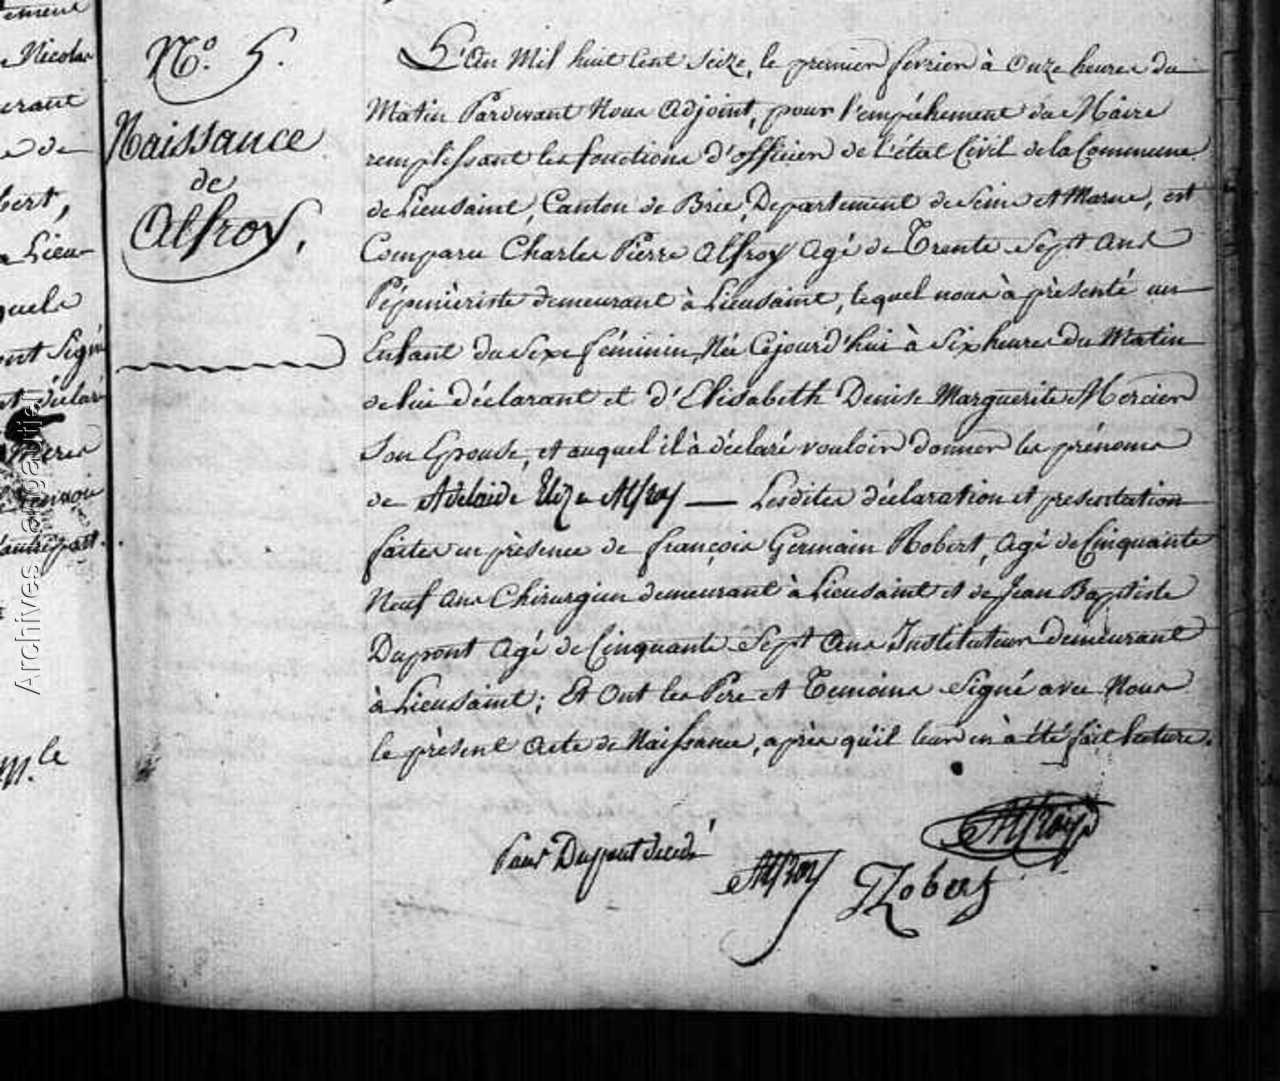 N.º 5.
Naissance
de
Alfroy,
L'an Mil huit Cent Seize, le premier février à Onze heures du
Matin Pardevant Nous Adjoint, pour l'empêchement du Maire
remplissant les fonctions d'officier de l'état Civil de la Commune
de Lieusaint, Canton de Brie, Departement de Seine et Marne, est
Comparu Charles Pierre Alfroy Agé de Trente Sept Ans
Pépinièriste demeurant à Lieusaint, lequel nous à présenté un
Enfant du Sexe féminin, Née Cejourd'hui à Six heures du Matin
de lui déclarant et d'Elisabeth Denise Marguerite Mercier
Son Epouse, et auquel il à déclaré vouloir donner les prénoms
de Adelaide Eliza Alfroy — Lesdites déclaration et présentation
faites en présence de françois Germain Robert, Agé de Cinquante
Neuf Ans Chirurgien demeurant à Lieusaint et de Jean Baptiste
Dupont Agé de Cinquante Sept Ans Instituteur demeurant
à Lieusaint; Et Ont les Pere et Temoins Signé avec Nous
le présent Acte de Naissance, après qu'il leur en à été fait lecture.
Pour Dupont décédé
Alfroy
Robert
Alfroy
tement
Nicolas
urant
de
bert,
Lieu-
quels
ont Signé
déclaré
M.le
Archives